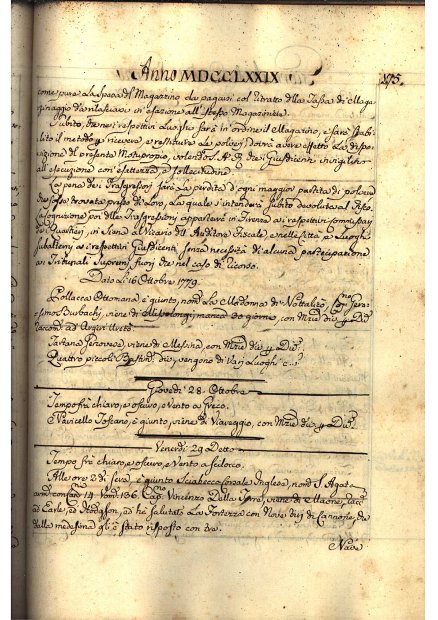 Anno MDCCLXXIX
175.
come pure La Spesa del Magazzino da pagarsi col ritratto della Tassa di Maga-
zinaggio esazione all'stesso Magaziniere.
Subito, che nei rispettivi Luoghi sarà in ordine il Magazzino, e sarà stabi-
lito il metodo per ricevere, e restituire La polvere, dovrà avere effetto La dispo-
sizione del presente Motuproprio, volendo S. A. R. che i Giusdicenti invigilino
all'esecuzione con esattezza, e sollecitudine
La pena dei Trasgressori sarà La perdita d'ogni maggior partita di polvere
che fosse trovata presso di Loro, La quale s'intenderà subito devoluta al Fisco,
La cognizione poi delle Trasgressioni apparterrà in Firenze ai rispettivi Commissarj
dei Quartieri, in Siena al Vicario dell'Auditore Fiscale, e nelle Città, e Luoghi
subalterni ai rispettivi Giusdicenti senza necessità di alcuna partecipazione
ai Tribunali Supremi fuori che nel caso di ricorso.
Dato Li 16 Ottobre 1779.
Pollacca Ottomana è giunto, nom. La Madonna di
Burbachi, viene di manca 30 giorni, con Mzie div. p. Div.
racc. ad Arguiri
Tartana Genovese, viene di Messina, con Mzie div. p. Div.
Quattro piccoli Bastim. div., vengono di Varj Luoghi
Giovedì 28. Ottobre
Tempo frà chiaro, e oscuro, e Vento a Greco.
Navicello Toscano, è giunto, viene di Viareggio, con Mzie div. p. Div.
Venerdì 29 Detto
Tempo frà chiaro, e oscuro, e Vento a Scilocco.
Alle ore 2 di Sera è giunto Sciabecco Corsale Inglese, nom. S. Agata
arm. con Can. 14 Uom. 136 Cap. Vincenzo Della viene di Maone, racc.
ad Earle, ed Hodgson, ed hà salutato La Fortezza con Nove tiri di Cannone, che
dalla medesima gli è stato risposto con tre.
Nave